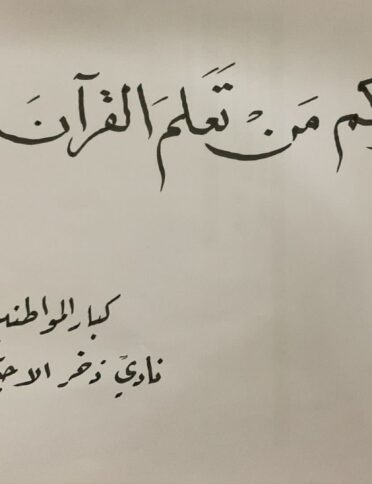 كم مَنْ تَعَلمَ القرآنَ
كبار المواطنين
نادي ذخر الا